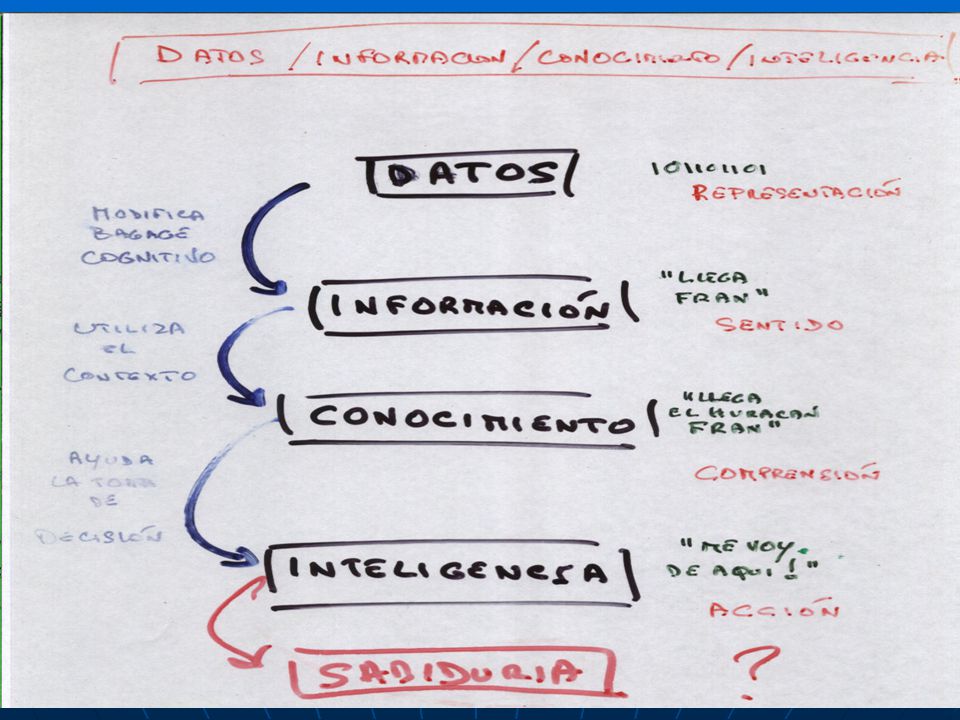 DATOS / INFORMACION / CONOCIMIENTO / INTELIGENCIA
DATOS
101101101
REPRESENTACIÓN
MODIFICA
BAGAGE
COGNITIVO
INFORMACIÓN
"LLEGA
FRAN"
SENTIDO
UTILIZA
EL
CONTEXTO
CONOCIMIENTO
"LLEGA
EL HURACAN
FRAN"
COMPRENSIÓN
AYUDA
LA TOMA
DE
DECISIÓN
INTELIGENCIA
"ME VOY
DE AQUI!"
ACCIÓN
SABIDURIA
?